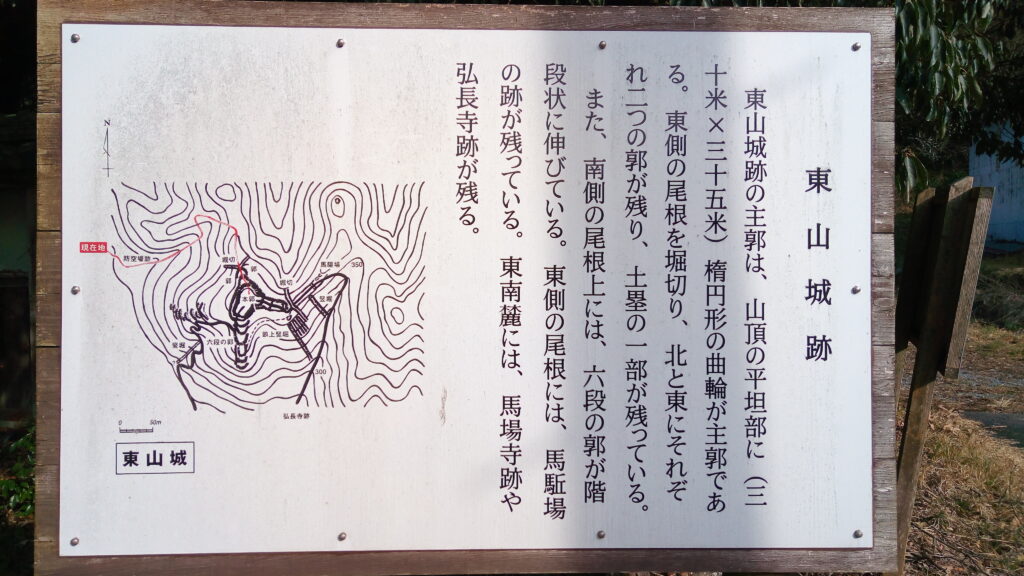 東山城跡
東山城跡の主郭は、山頂の平坦部に（三
十米×三十五米）楕円形の曲輪が主郭であ
る。東側の尾根を堀切り、北と東にそれぞ
れ二つの郭が残り、土塁の一部が残っている。
また、南側の尾根上には、六段の郭が階
段状に伸びている。東側の尾根には、馬駈場
の跡が残っている。東南麓には、馬場寺跡や
弘長寺跡が残る。
N
現在地
防空壕跡
堀切
郭
郭
本郭
堀切
馬駈場
350
竪堀
六段の郭
竪堀
300
弘長寺跡
0 50m
東山城